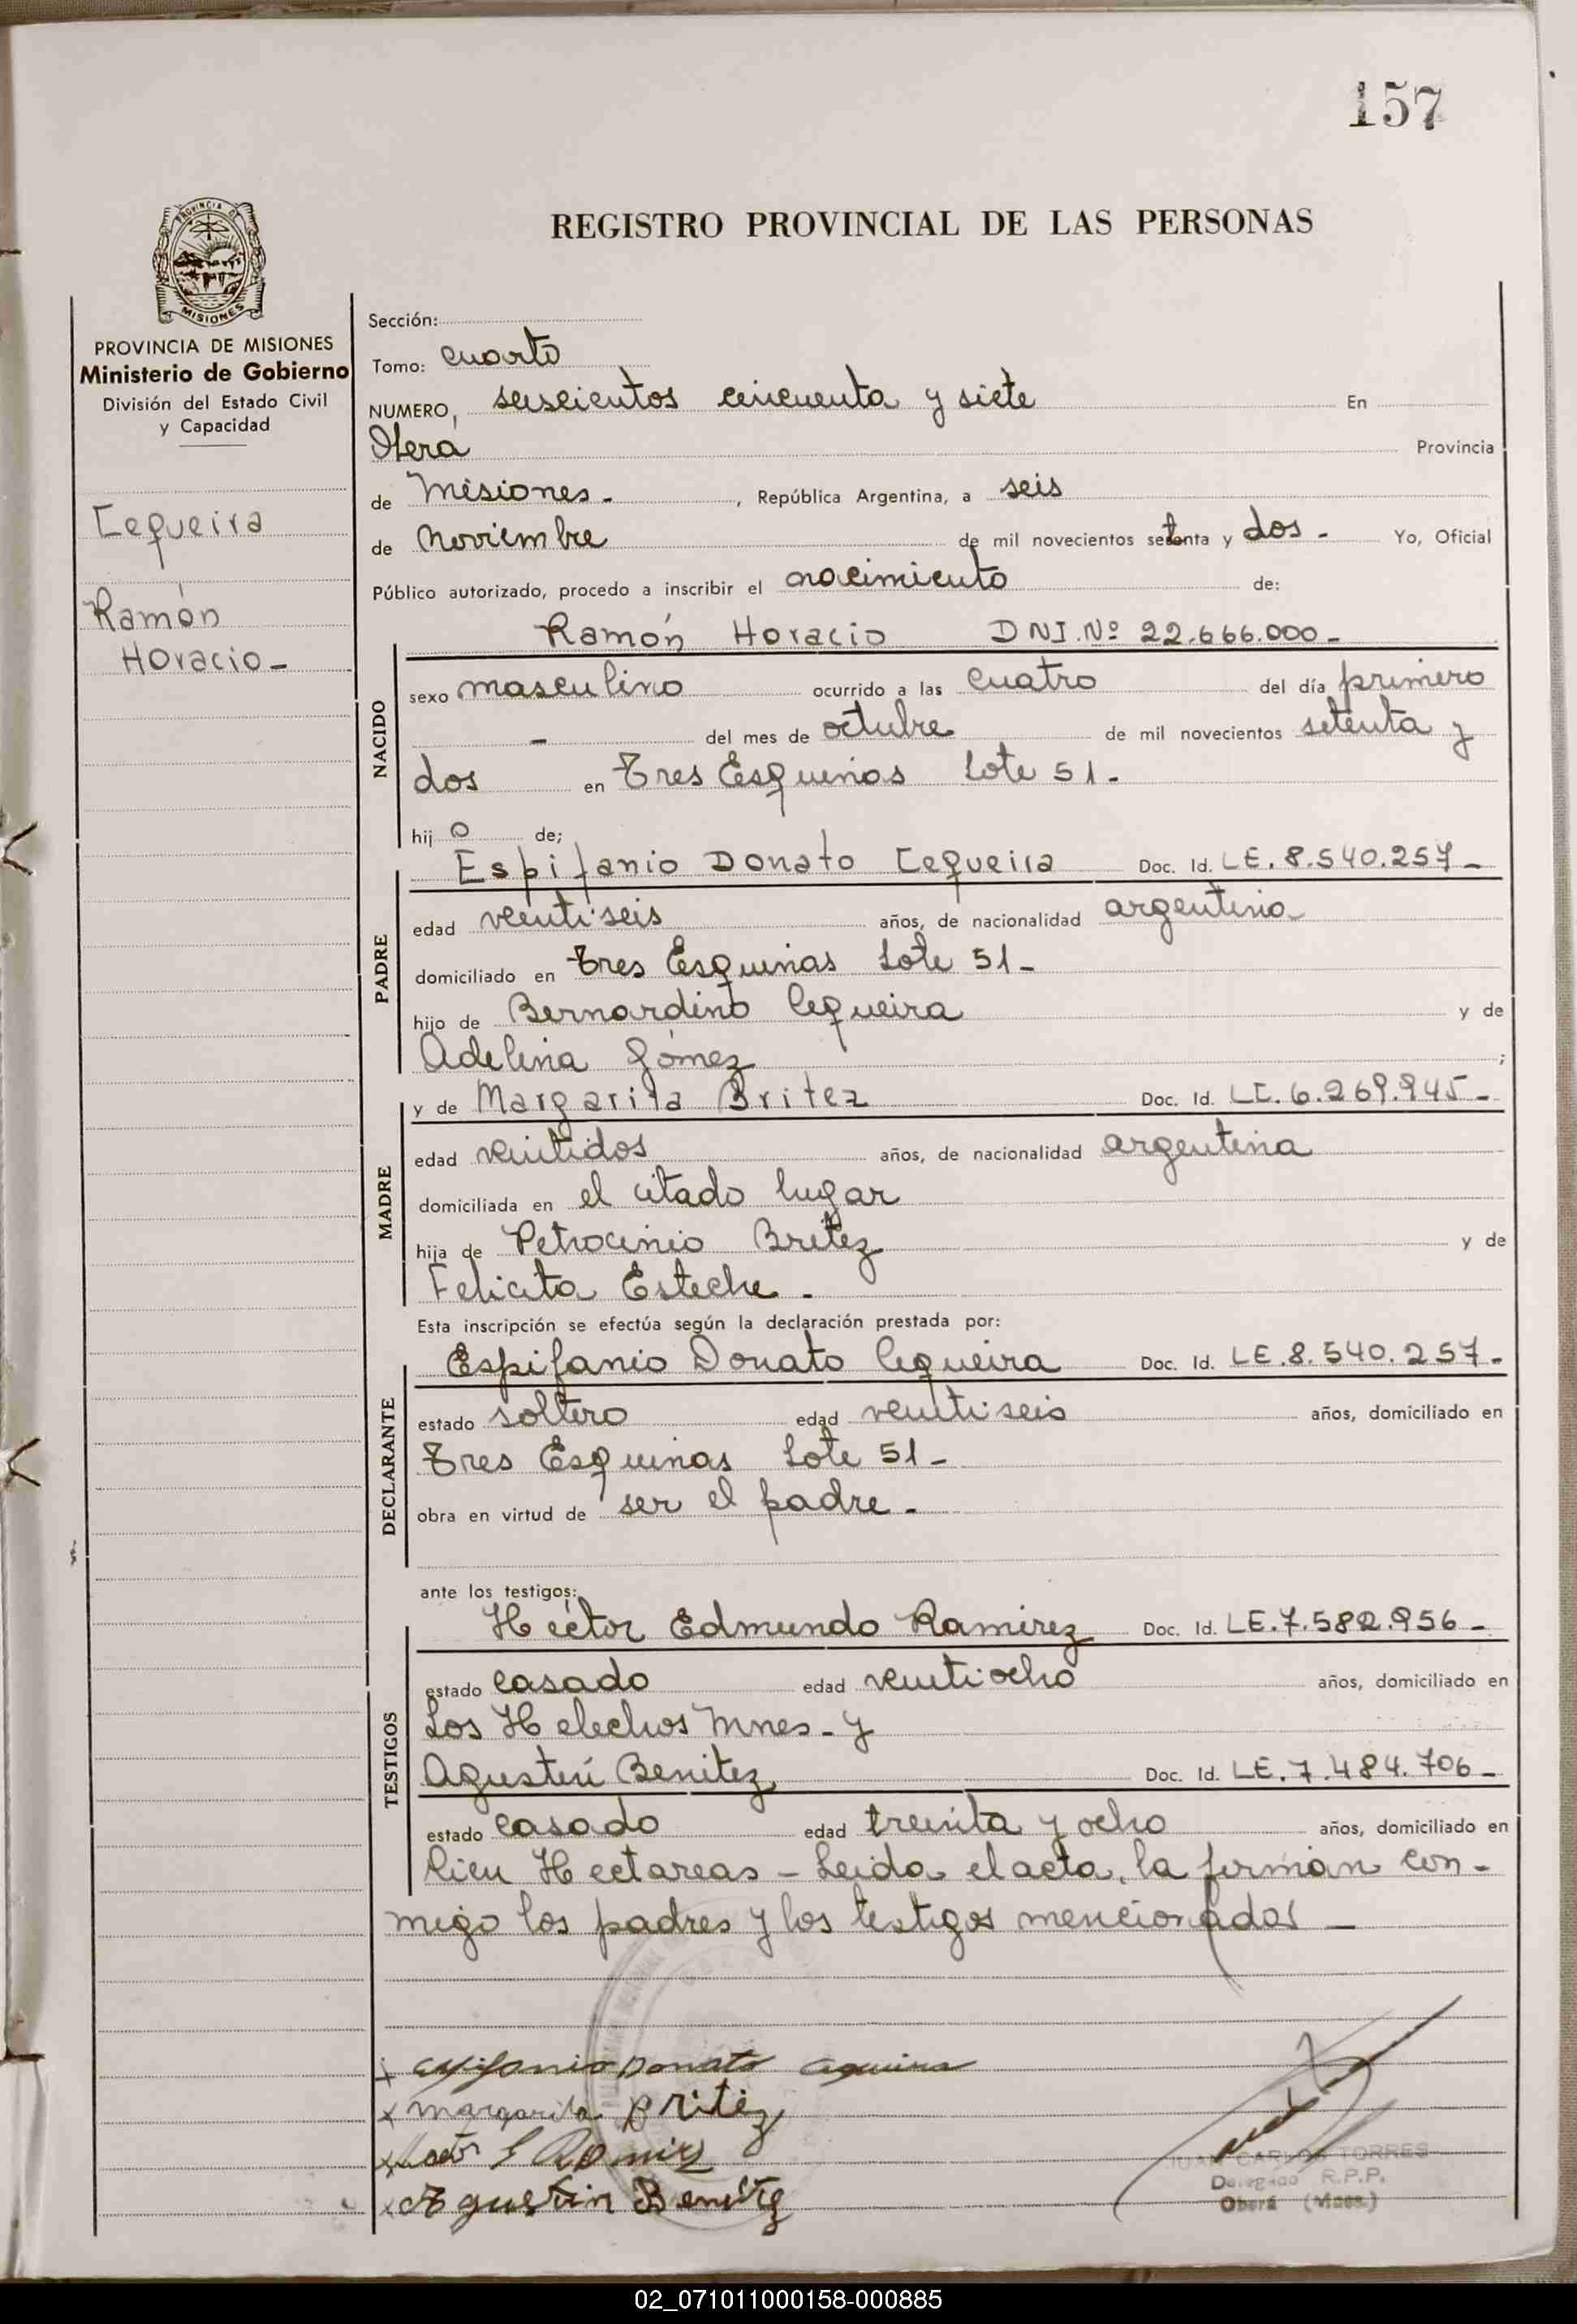 157
REGISTRO PROVINCIAL DE LAS PERSONAS
PROVINCIA DE
MISIONES
PROVINCIA DE MISIONES
Ministerio de Gobierno
División del Estado Civil
y Capacidad
Cequeira
Ramón
Horacio -
Sección:
Tomo: cuarto
NUMERO, seiscientos cincuenta y siete En
Oberá Provincia
de Misiones - , República Argentina, a seis
de Noviembre de mil novecientos setenta y dos - Yo, Oficial
Público autorizado, procedo a inscribir el nacimiento de:
Ramón Horacio DNI.Nº 22.666.000 -
NACIDO
sexo masculino ocurrido a las cuatro del día primero
- del mes de octubre de mil novecientos setenta y
dos en Tres Esquinas Lote 51 -
hij o de;
Espifanio Donato Cequeira Doc. Id. LE. 8.540.257 -
PADRE
edad veintiseis años, de nacionalidad argentino
domiciliado en Tres Esquinas Lote 51 -
hijo de Bernardino Cequeira y de
Adelina Gómez ;
y de Margarita Britez Doc. Id. LC. 6.269.945 -
MADRE
edad veintidos años, de nacionalidad argentina
domiciliada en el citado lugar
hija de Petrocinio Britez y de
Felicita Esteche -
Esta inscripción se efectúa según la declaración prestada por:
Espifanio Donato Cequeira Doc. Id. LE. 8.540.257 -
DECLARANTE
estado soltero edad veintiseis años, domiciliado en
Tres Esquinas Lote 51 -
obra en virtud de ser el padre -
ante los testigos;
Héctor Edmundo Ramirez Doc. Id. LE. 7.582.956 -
TESTIGOS
estado casado edad veintiocho años, domiciliado en
Los Helechos Mnes - y
Agustín Benitez Doc. Id. LE. 7.484.706 -
estado casado edad treinta y ocho años, domiciliado en
Cien Hectareas - Leida el acta, la firman con-
migo los padres y los testigos mencionados -
x Espifanio Donato Cequeira
x margarita Britez
x
x Agustin Benitez
JUAN CARLOS TORRES
Delegado R.P.P.
Oberá (Mnes.)
02_071011000158-000885